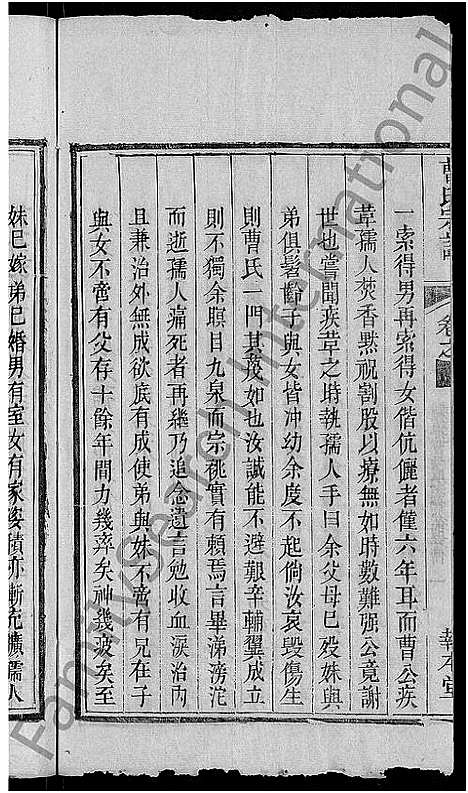 曹氏宗譜
卷之
敦本堂
一索得男再索得女偕伉儷者僅六年耳而曹公疾
革孺人焚香黙祝割股以療無如時數難强公竟謝
世也嘗聞疾革之時執孺人手曰余父母已殁妹與
弟俱髫齡子與女皆冲幼余度不起倘汝哀毁傷生
則曹氏一門其㷀如也汝誠能不避艱辛輔翼成立
則不獨余瞑目九泉而宗祧實有賴焉言畢涕滂沱
而逝孺人痛死者再繼乃追念遺言勉收血淚治内
且兼治外無成欲底有成使弟與妹不啻有兄在子
與女不啻有父存十餘年間力幾瘁矣神幾疲矣至
妹已嫁弟已婚男有室女有家姿積亦漸充擴孺人
FamilySearch International